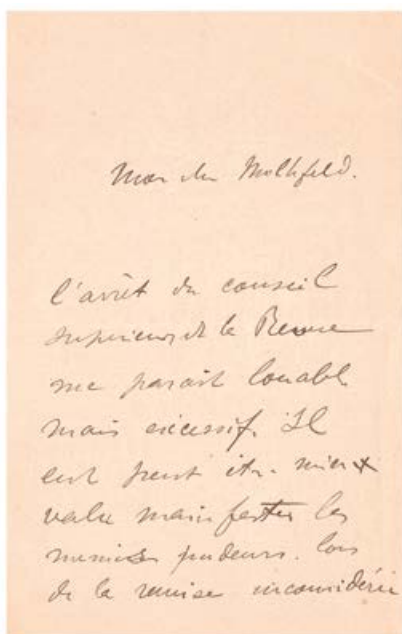 Mon cher Mulhfeld.
l'arrêt du conseil
supérieur de la Revue
me parait louable
mais excessif. Il
eut peut etr. mieux
valu manifester les
memes pudeurs. lors
de la remise inconsidérée